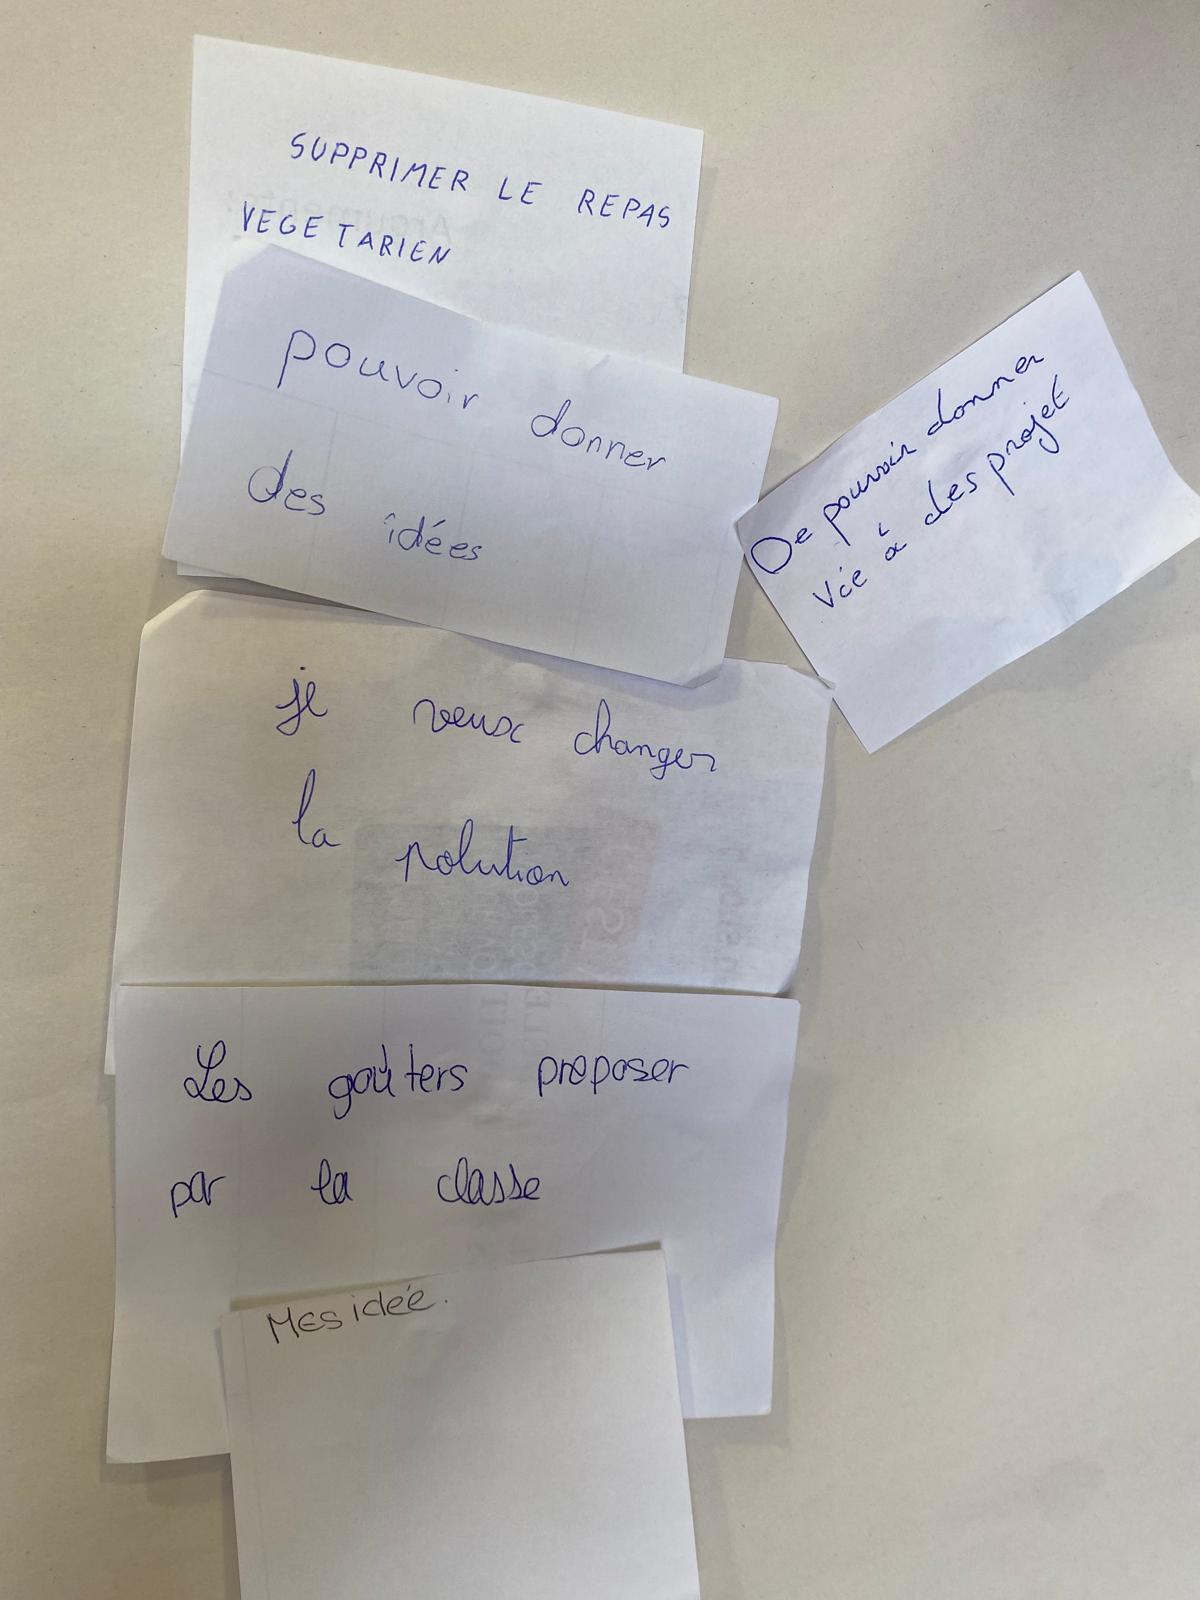 SUPPRIMER LE REPAS
VEGETARIEN
pouvoir donner
des idées
De pouvoir donner
vie à des projet
je veux changer
la polution
Les goûters proposer
par la classe
Mes idée.